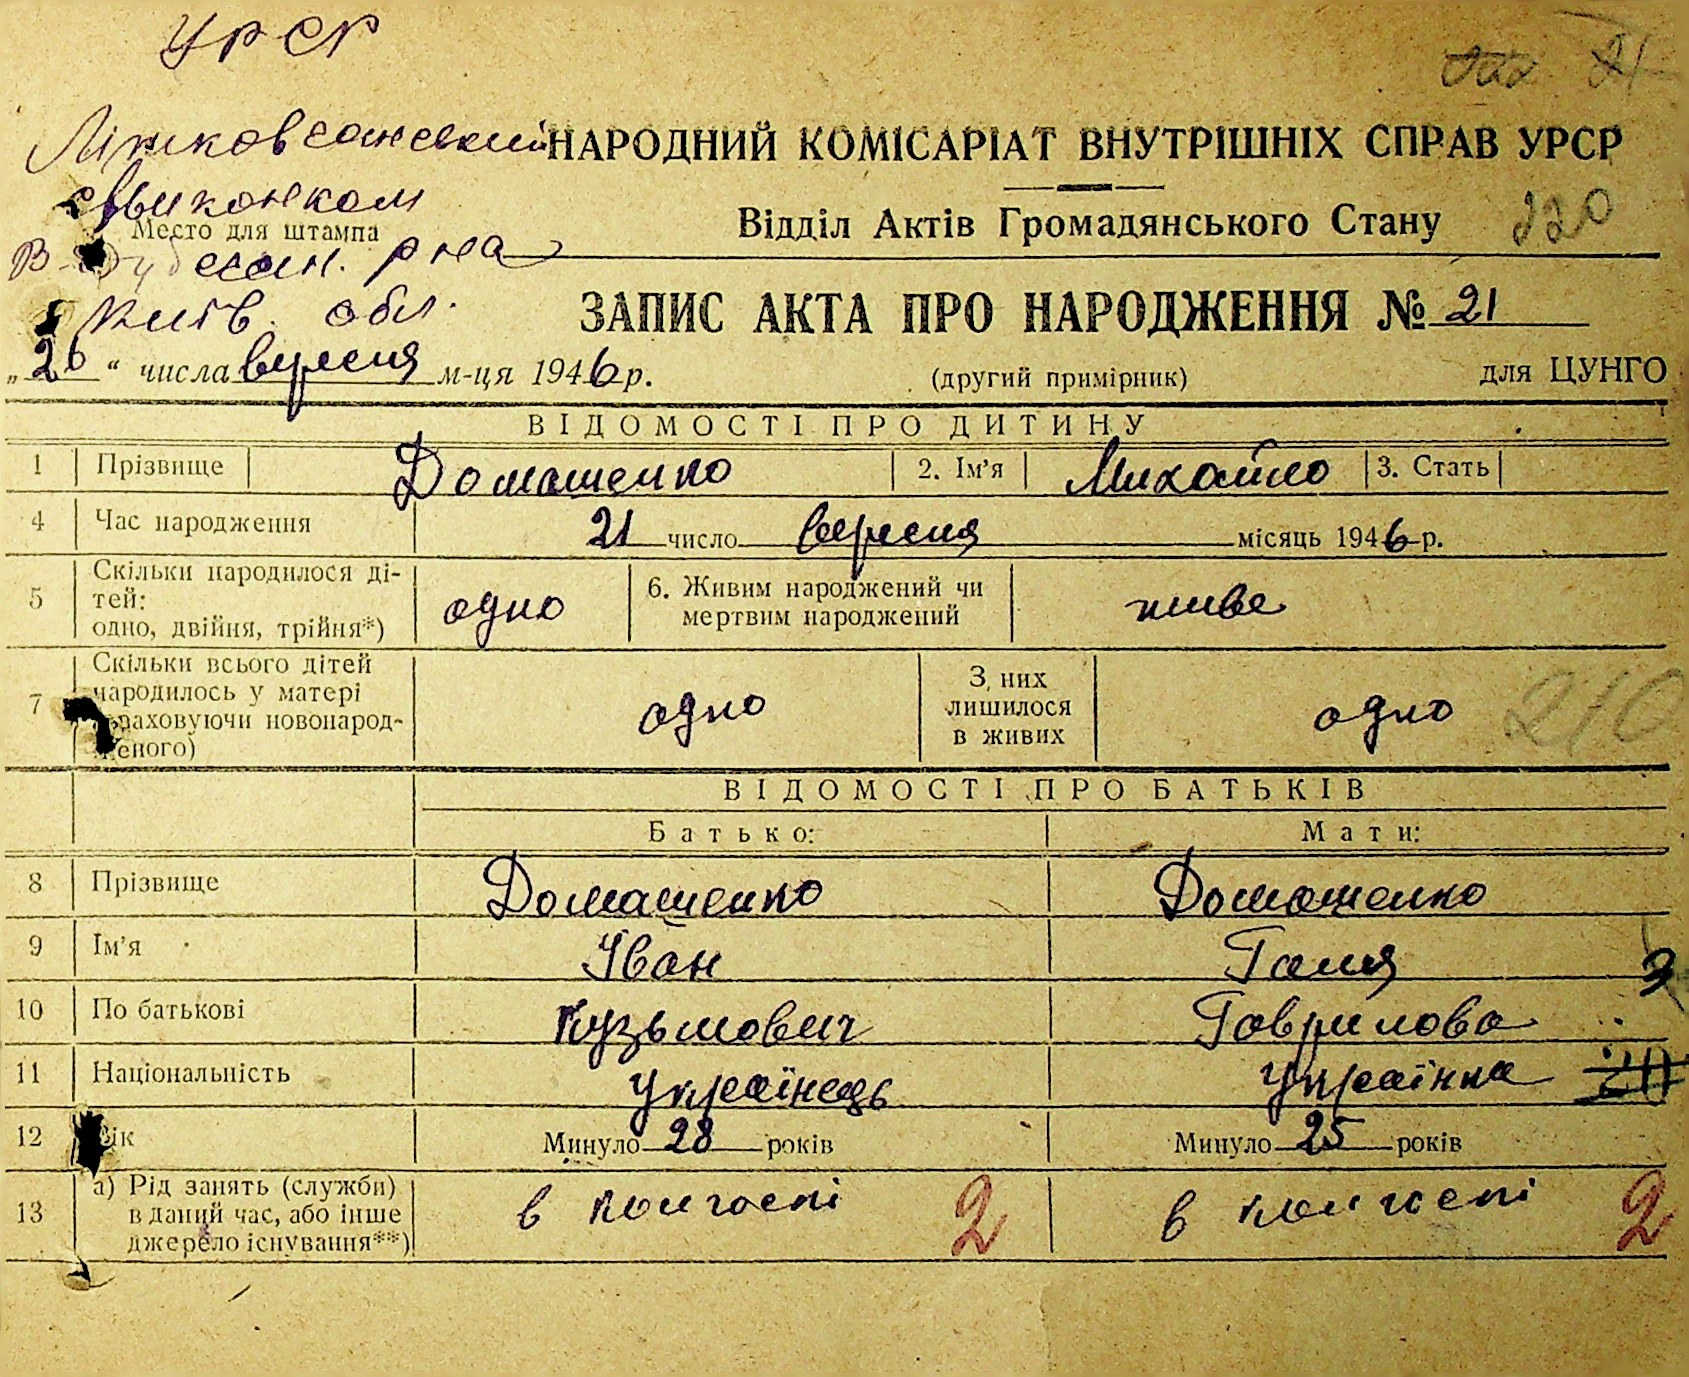 УРСР
НАРОДНИЙ КОМІСАРІАТ ВНУТРІШНІХ СПРАВ УРСР
виконком
Место для штампа
Відділ Актів Громадянського Стану 220
р на
Київ. обл.
ЗАПИС АКТА ПРО НАРОДЖЕННЯ № 21
„26“ числа вересня м-ця 1946 р. (другий примірник) для ЦУНГО
ВІДОМОСТІ ПРО ДИТИНУ
1 Прізвище Домашенко 2. Ім'я Михайло 3. Стать
4 Час народження 21 число вересня місяць 1946 р.
5 Скільки народилося ді-
тей:
одно, двійня, трійня*) одно 6. Живим народжений чи
мертвим народжений живе
7 Скільки всього дітей
народилось у матері
враховуючи новонарод-
женого) одно З них
лишилося
в живих одно 210
ВІДОМОСТІ ПРО БАТЬКІВ
Батько: Мати:
8 Прізвище Домашенко Домашенко
9 Ім'я Іван Галя
10 По батькові Кузьмович Гаврилова
11 Національність Українець Українка 20
12 Вік Минуло 28 років Минуло 25 років
13 а) Рід занять (служби)
в даний час, або інше
джерело існування**) в колгоспі 2 в колгоспі 2